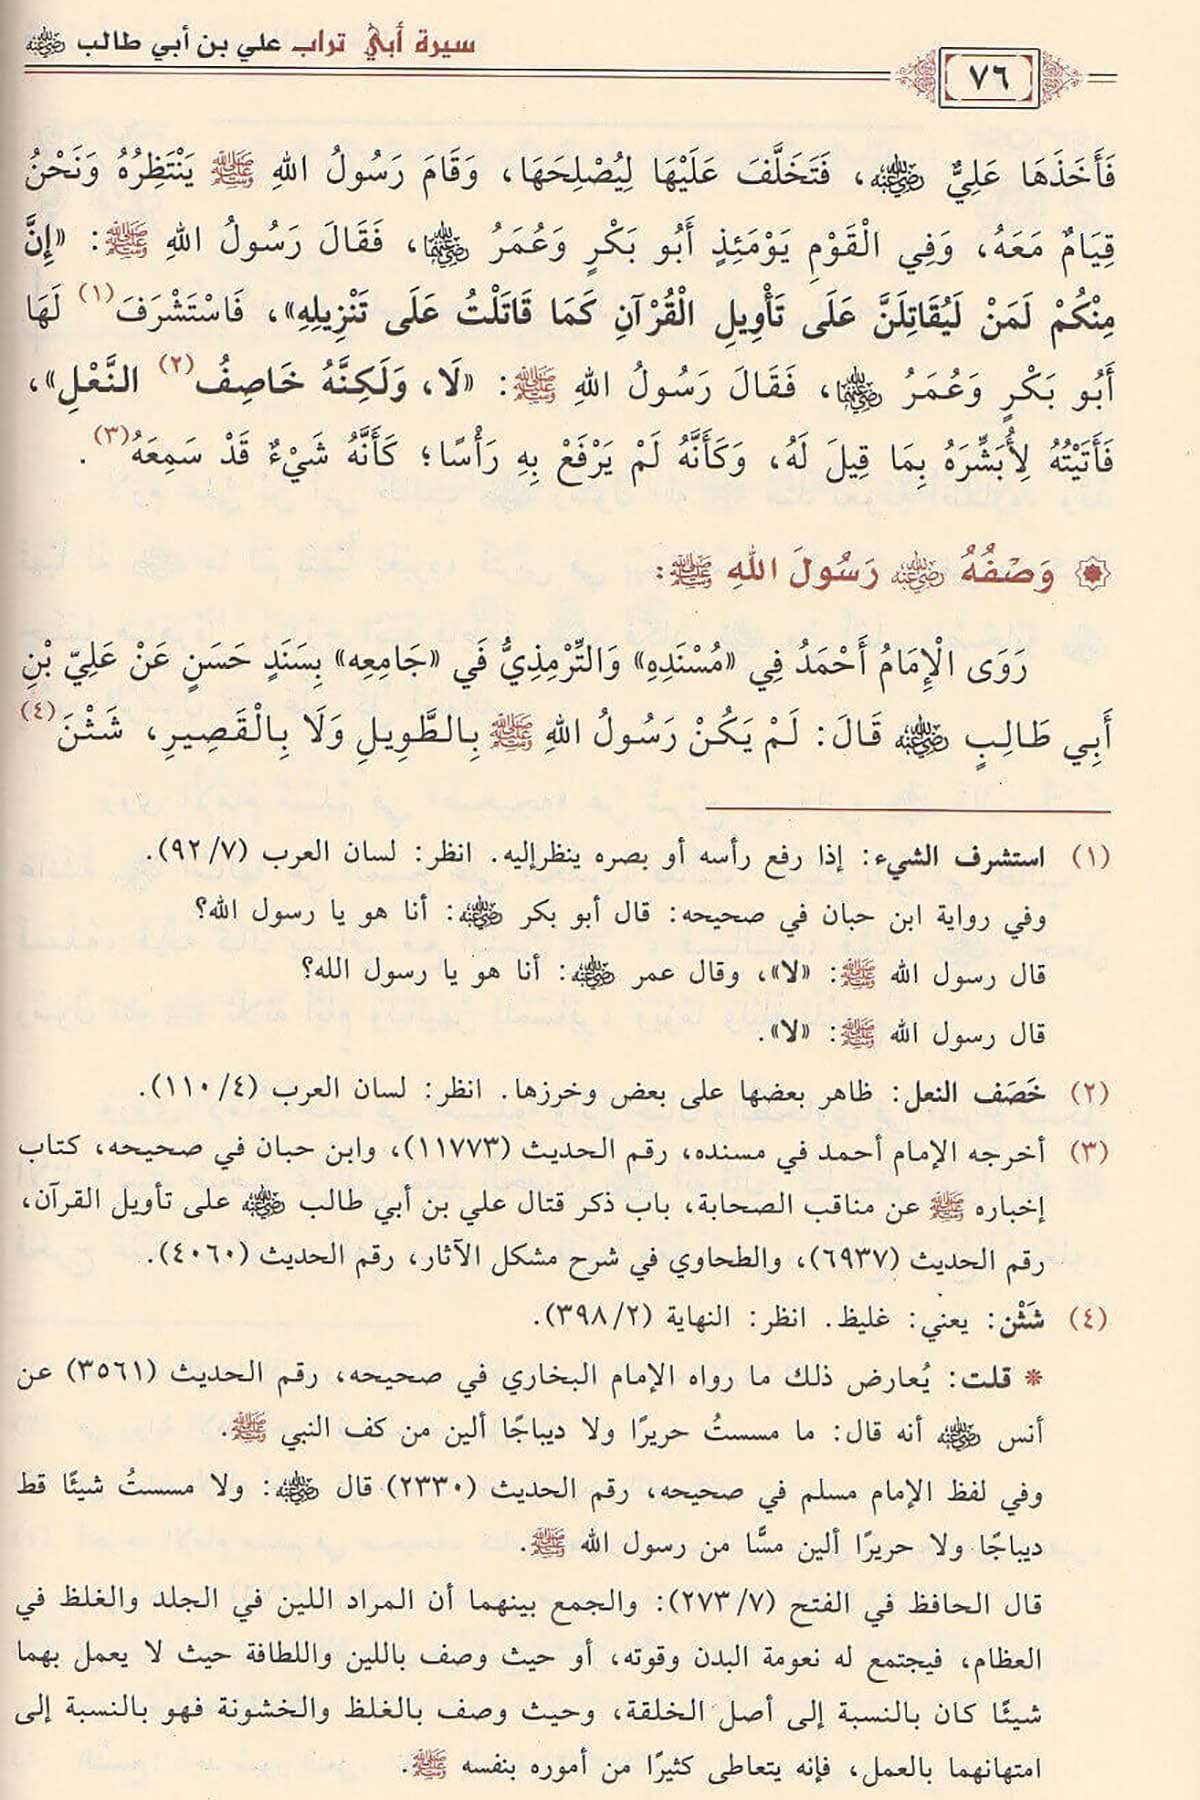 سيرة أبي تراب علي بن أبي طالب رضي الله عنه
٧٦
فَأَخَذَهَا عَلِيٌّ رضي الله عنه، فَتَخَلَّفَ عَلَيْهَا لِيُصْلِحَهَا، وَقَامَ رَسُولُ اللهِ ﷺ يَنْتَظِرُهُ وَنَحْنُ
قِيَامٌ مَعَهُ، وَفِي الْقَوْمِ يَوْمَئِذٍ أَبُو بَكْرٍ وَعُمَرُ رضي الله عنهما، فَقَالَ رَسُولُ اللهِ ﷺ: «إِنَّ
مِنْكُمْ لَمَنْ لَيُقَاتِلَنَّ عَلَى تَأْوِيلِ الْقُرْآنِ كَمَا قَاتَلْتُ عَلَى تَنْزِيلِهِ»، فَاسْتَشْرَفَ(١) لَهَا
أَبُو بَكْرٍ وَعُمَرُ رضي الله عنهما، فَقَالَ رَسُولُ اللهِ ﷺ: «لَا، وَلَكِنَّهُ خَاصِفُ(٢) النَّعْلِ»،
فَأَتَيْتُهُ لِأُبَشِّرَهُ بِمَا قِيلَ لَهُ، وَكَأَنَّهُ لَمْ يَرْفَعْ بِهِ رَأْسًا؛ كَأَنَّهُ شَيْءٌ قَدْ سَمِعَهُ(٣).
وَصْفُهُ رضي الله عنه رَسُولَ اللهِ ﷺ:
رَوَى الْإِمَامُ أَحْمَدُ فِي «مُسْنَدِهِ» وَالتِّرْمِذِيُّ فَي «جَامِعِه» بِسَنَدٍ حَسَنٍ عَنْ عَلِيِّ بْنِ
أَبِي طَالِبٍ رضي الله عنه قَالَ: لَمْ يَكُنْ رَسُولُ اللهِ ﷺ بِالطَّوِيلِ وَلَا بِالْقَصِيرِ، شَثْنَ(٤)
(١) استشرف الشيء: إذا رفع رأسه أو بصره ينظر إليه. انظر: لسان العرب (٩٢/٧).
وفي رواية ابن حبان في صحيحه: قال أبو بكر رضي الله عنه: أنا هو يا رسول الله؟
قال رسول الله ﷺ: «لا»، وقال عمر رضي الله عنه: أنا هو يا رسول الله؟
قال رسول الله ﷺ: «لا».
(٢) خَصَف النعل: ظاهر بعضها على بعض وخرزها. انظر: لسان العرب (١١٠/٤).
(٣) أخرجه الإمام أحمد في مسنده، رقم الحديث (١١٧٧٣)، وابن حبان في صحيحه، كتاب
إخباره ﷺ عن مناقب الصحابة، باب ذكر قتال علي بن أبي طالب رضي الله عنه على تأويل القرآن،
رقم الحديث (٦٩٣٧)، والطحاوي في شرح مشكل الآثار، رقم الحديث (٤٠٦٠).
(٤) شَثْن: يعني: غليظ. انظر: النهاية (٣٩٨/٢).
* قلت: يُعارض ذلك ما رواه الإمام البخاري في صحيحه، رقم الحديث (٣٥٦١) عن
أنس رضي الله عنه أنه قال: ما مسستُ حريرًا ولا ديباجًا ألين من كف النبي ﷺ.
وفي لفظ الإمام مسلم في صحيحه، رقم الحديث (٢٣٣٠) قال رضي الله عنه: ولا مسستُ شيئًا قط
ديباجًا ولا حريرًا ألين مسًّا من رسول الله ﷺ.
قال الحافظ في الفتح (٢٧٣/٧): والجمع بينهما أن المراد اللين في الجلد والغلظ في
العظام، فيجتمع له نعومة البدن وقوته، أو حيث وصف باللين واللطافة حيث لا يعمل بهما
شيئًا كان بالنسبة إلى أصل الخلقة، وحيث وصف بالغلظ والخشونة فهو بالنسبة إلى
امتهانهما بالعمل، فإنه يتعاطى كثيرًا من أموره بنفسه ﷺ.